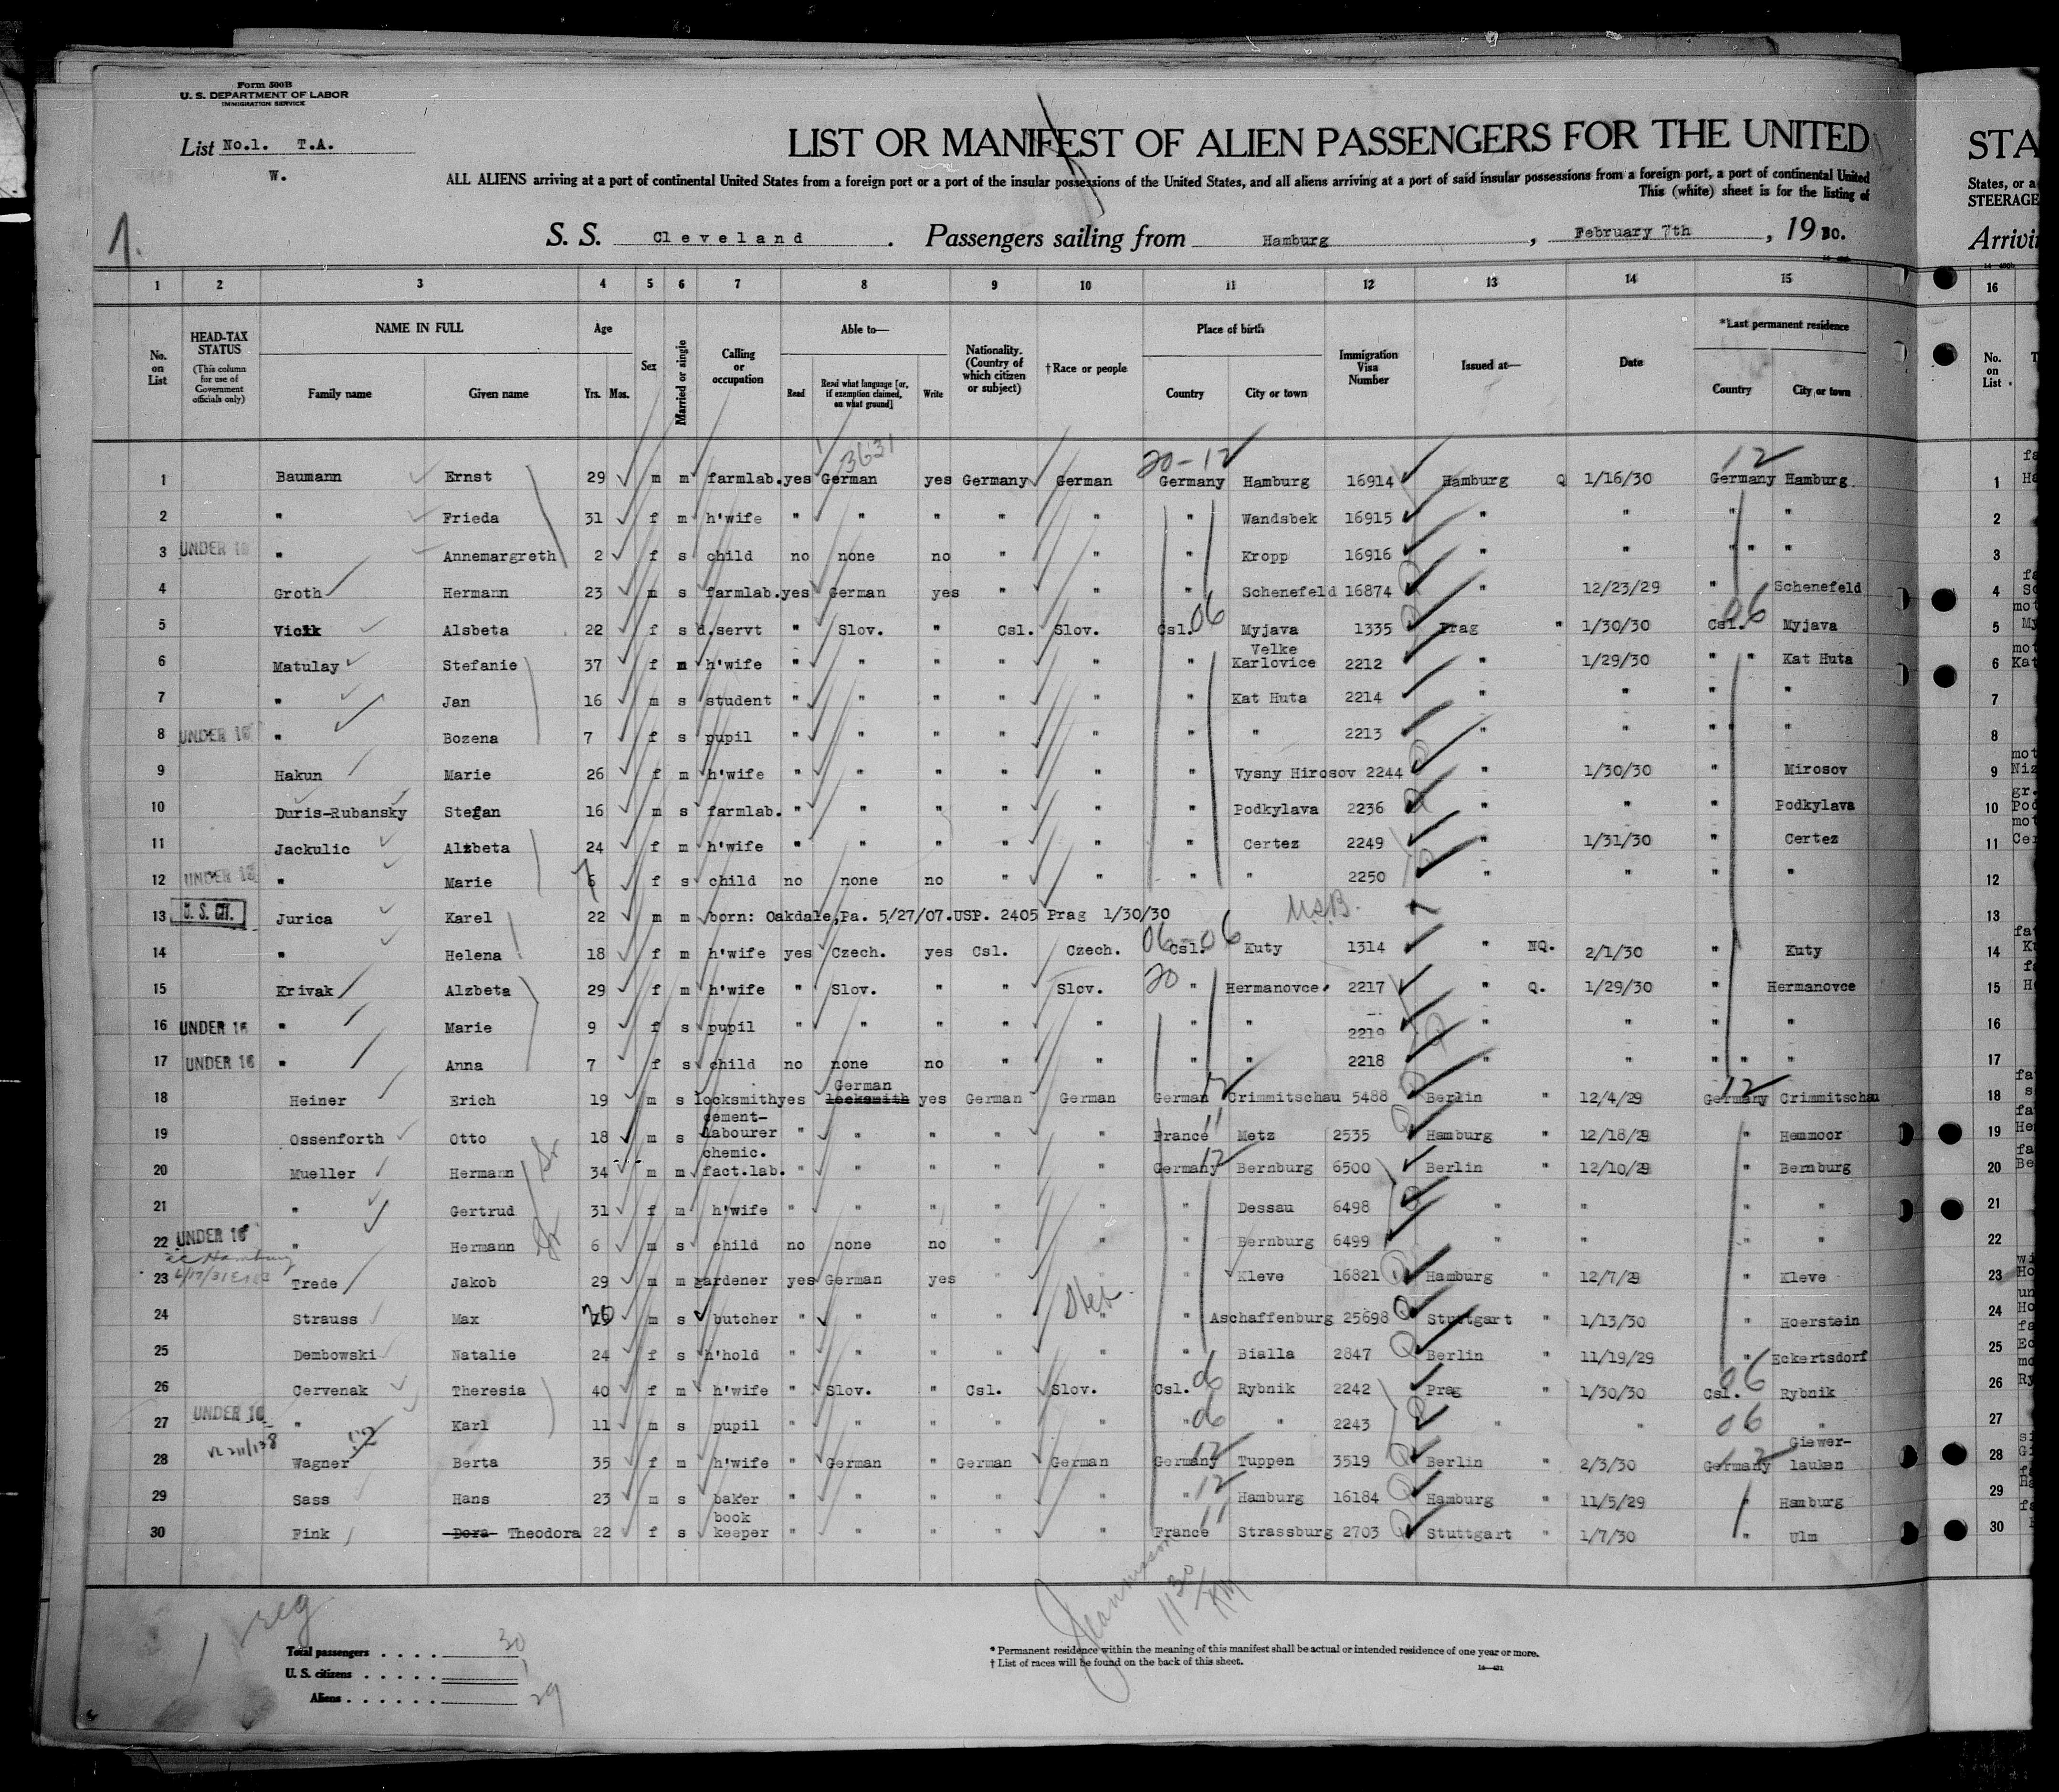 Form 500B
U. S. DEPARTMENT OF LABOR
IMMIGRATION SERVICE
List No.1. T.A.
W.
1.
LIST OR MANIFEST OF ALIEN PASSENGERS FOR THE UNITED
ALL ALIENS arriving at a port of continental United States from a foreign port or a port of the insular possessions of the United States, and all aliens arriving at a port of said insular possessions from a foreign port, a port of continental United
This (white) sheet is for the listing of
S. S. Cleveland. Passengers sailing from Hamburg, February 7th, 19 30.
STA
States, or a
STEERAGE
Arrivi
1 2 3 4 5 6 7 8 9 10 11 12 13 14 15 16
No. on List
HEAD-TAX STATUS (This column for use of Government officials only)
NAME IN FULL
Family name Given name
Age
Yrs. Mos.
Sex
Married or single
Calling or occupation
Able to—
Read
Read what language [or, if exemption claimed, on what ground]
Write
Nationality. (Country of which citizen or subject)
†Race or people
Place of birth
Country City or town
Immigration Visa Number
Issued at—
Date
*Last permanent residence
Country City or town
No. on List
3631 20-12 12
1 Baumann Ernst 29 m m farmlab. yes German yes Germany German Germany Hamburg 16914 Hamburg Q 1/16/30 Germany Hamburg. 1
2 " Frieda 31 f m h'wife " " " " " " Wandsbek 16915 " " " " 2
3 UNDER 16 " Annemargreth 2 f s child no none no " " " Kropp 16916 " " " " " 3
4 Groth Hermann 23 m s farmlab. yes German yes " " " Schenefeld 16874 " 12/23/29 " Schenefeld 4
5 Vicik Alsbeta 22 f s d.servt " Slov. " Csl. Slov. Csl. 06 Myjava 1335 Prag " 1/30/30 Csl. 06 Myjava 5
6 Matulay Stefanie 37 f m h'wife " " " " " " Velke Karlovice 2212 " 1/29/30 " " Kat Huta 6
7 " Jan 16 m s student " " " " " " Kat Huta 2214 " " " " 7
8 UNDER 16 " Bozena 7 f s pupil " " " " " " " 2213 " " " " 8
9 Hakun Marie 26 f m h'wife " " " " " " Vysny Hirosov 2244 " 1/30/30 " Mirosov 9
10 Duris-Rubansky Stefan 16 m s farmlab. " " " " " " Podkylava 2236 " " " Podkylava 10
11 Jackulic Alzbeta 24 f m h'wife " " " " " " Certez 2249 " 1/31/30 " Certez 11
12 UNDER 16 " Marie 6 7 f s child no none no " " " " 2250 " " " " 12
13 U. S. CIT. Jurica Karel 22 m m born: Oakdale,Pa. 5/27/07.USP. 2405 Prag 1/30/30 USB. 13
14 " Helena 18 f m h'wife yes Czech. yes Csl. Czech. 06 Csl. 06 Kuty 1314 " NQ. 2/1/30 " Kuty 14
15 Krivak Alzbeta 29 f m h'wife " Slov. " " Slov. 20 " Hermanovce 2217 " Q. 1/29/30 " Hermanovce 15
16 UNDER 16 " Marie 9 f s pupil " " " " " " " 2219 " " " " 16
17 UNDER 16 " Anna 7 f s child no none no " " " " 2218 " " " " " 17
18 Heiner Erich 19 m s locksmith yes German locksmith yes German German German 12 Crimmitschau 5488 Berlin " 12/4/29 Germany 12 Crimmitschau 18
19 Ossenforth Otto 18 m s cement-labourer " " " " " France 11 Metz 2535 Hamburg " 12/18/29 " Hemmoor 19
20 Mueller Hermann Sr 34 m m chemic. fact.lab. " " " " " Germany 12 Bernburg 6500 Berlin " 12/10/29 " Bernburg 20
21 " Gertrud 31 f m h'wife " " " " " " Dessau 6498 " " " " " 21
22 UNDER 16 " Hermann Jr 6 m s child no none no " " " Bernburg 6499 " " " " " 22
23 Trede Jakob 29 m m gardener yes German yes " " " Kleve 16821 Hamburg " 12/7/29 " Kleve 23
24 Strauss Max m s butcher " " " " " Heb. " Aschaffenburg 25698 Stuttgart " 1/13/30 " Hoerstein 24
25 Dembowski Natalie 24 f s h'hold " " " " " " Bialla 2847 Berlin " 11/19/29 " Eckertsdorf 25
26 Cervenak Theresia 40 f m h'wife " Slov. " Csl. Slov. Csl. 06 Rybnik 2242 Prag " 1/30/30 Csl. 06 Rybnik 26
27 UNDER 16 " Karl 11 m s pupil " " " " " " 06 " 2243 " " " 06 " 27
28 Wagner Berta 35 f m h'wife " German " German German Germany 12 Tuppen 3519 Berlin " 2/3/30 Germany 12 Giewer-lauken 28
29 Sass Hans 23 m s baker " " " " " " 12 Hamburg 16184 Hamburg " 11/5/29 " Hamburg 29
30 Fink Dora Theodora 22 f s book keeper " " " " " France 11 Strassburg 2703 Stuttgart " 1/7/30 " Ulm 30
reg
Total passengers . . . . 30
U. S. citizens . . . . . 1
Aliens . . . . . . 29
* Permanent residence within the meaning of this manifest shall be actual or intended residence of one year or more.
† List of races will be found on the back of this sheet.